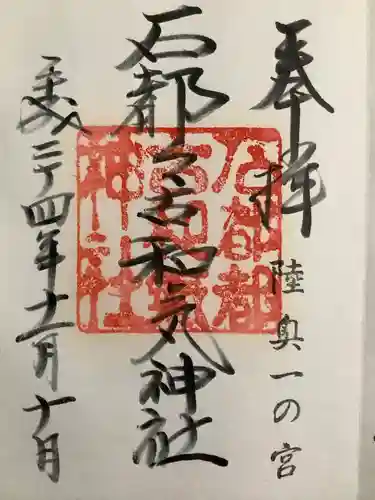 奉拝
陸奥一の宮
石都々古和気神社
平成二十四年十一月十日
石都都
古和気
神社